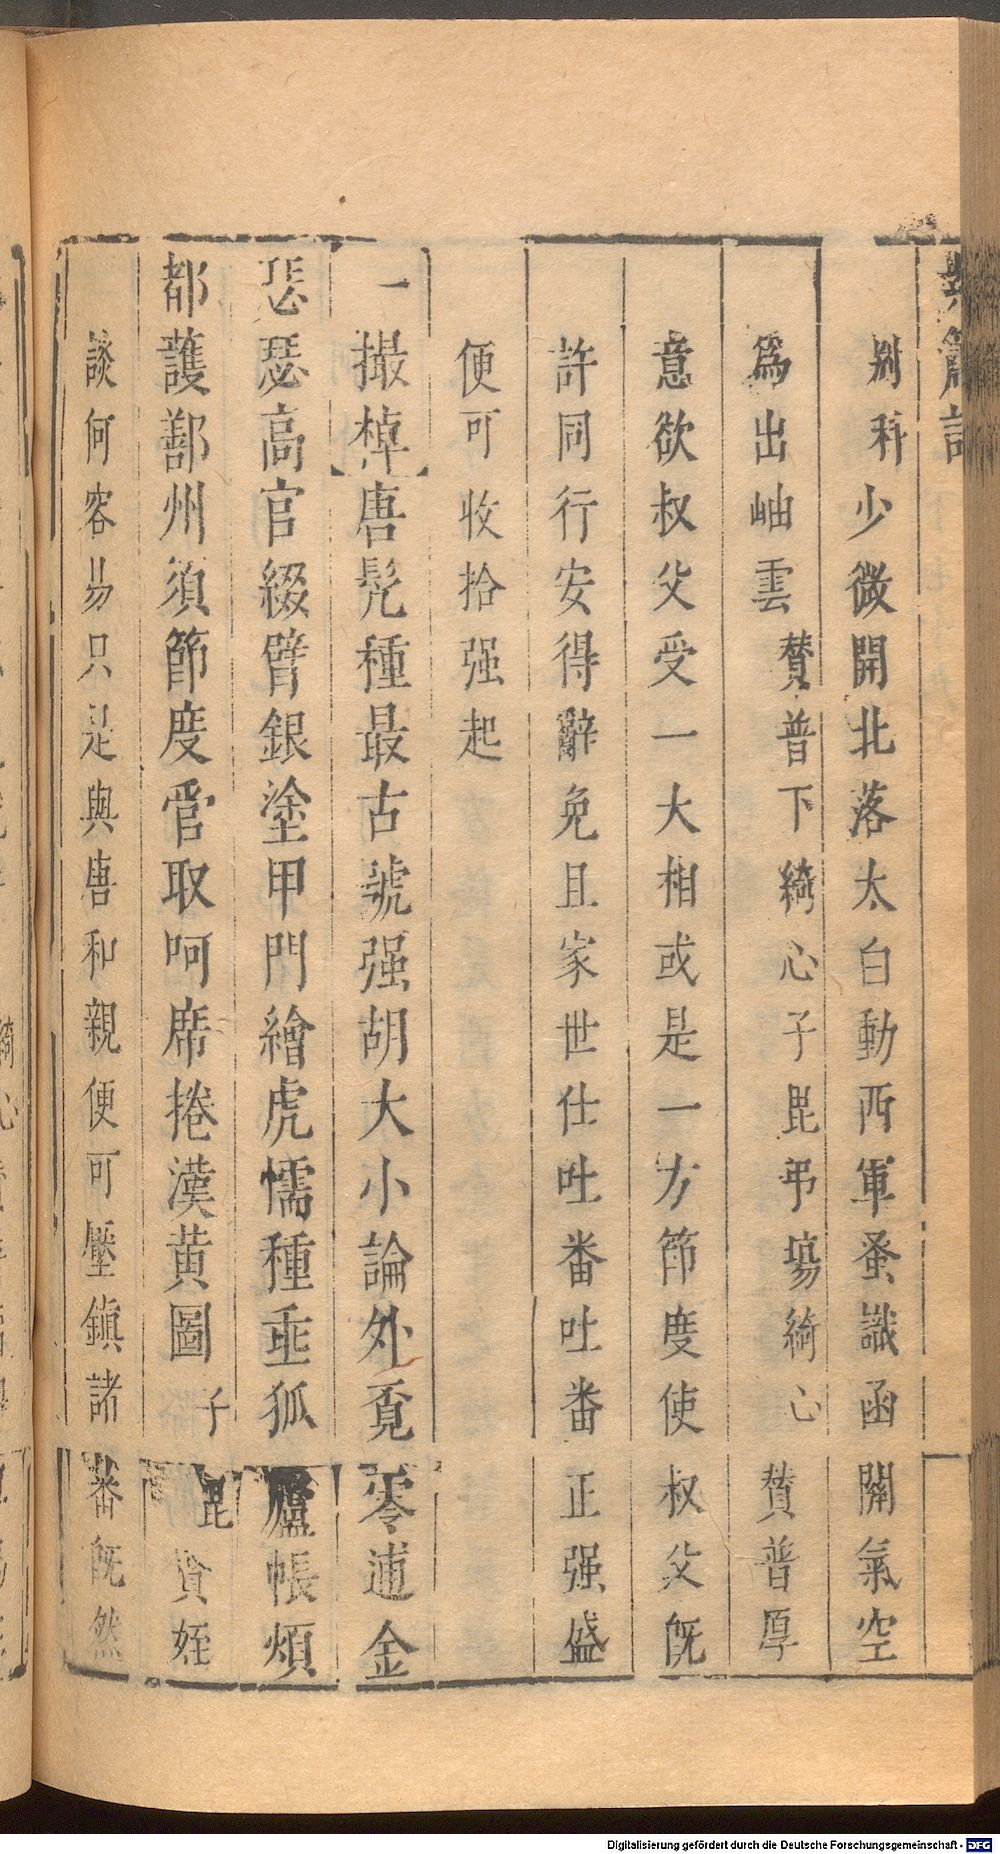 別科少微開北落太白動西軍蚤識函關氣空
爲出岫雲贊普下綺心子毘弔塲綺心贊普厚
意欲叔父受一大相或是一方節度使叔父既
許同行安得辭免且家世仕吐番吐番正强盛
便可收拾强起
一撮棹唐髡種最古號强胡大小論外覔零逋金
瑟瑟高官綴臂銀塗甲門繪虎懦種乖狐廬帳煩
都護鄯州須節度官取呵席捲漢黄圖子毘賢姪
談何容易只是與唐和親便可壓鎮諸番既然
Digitalisierung gefördert durch die Deutsche Forschungsgemeinschaft - DFG